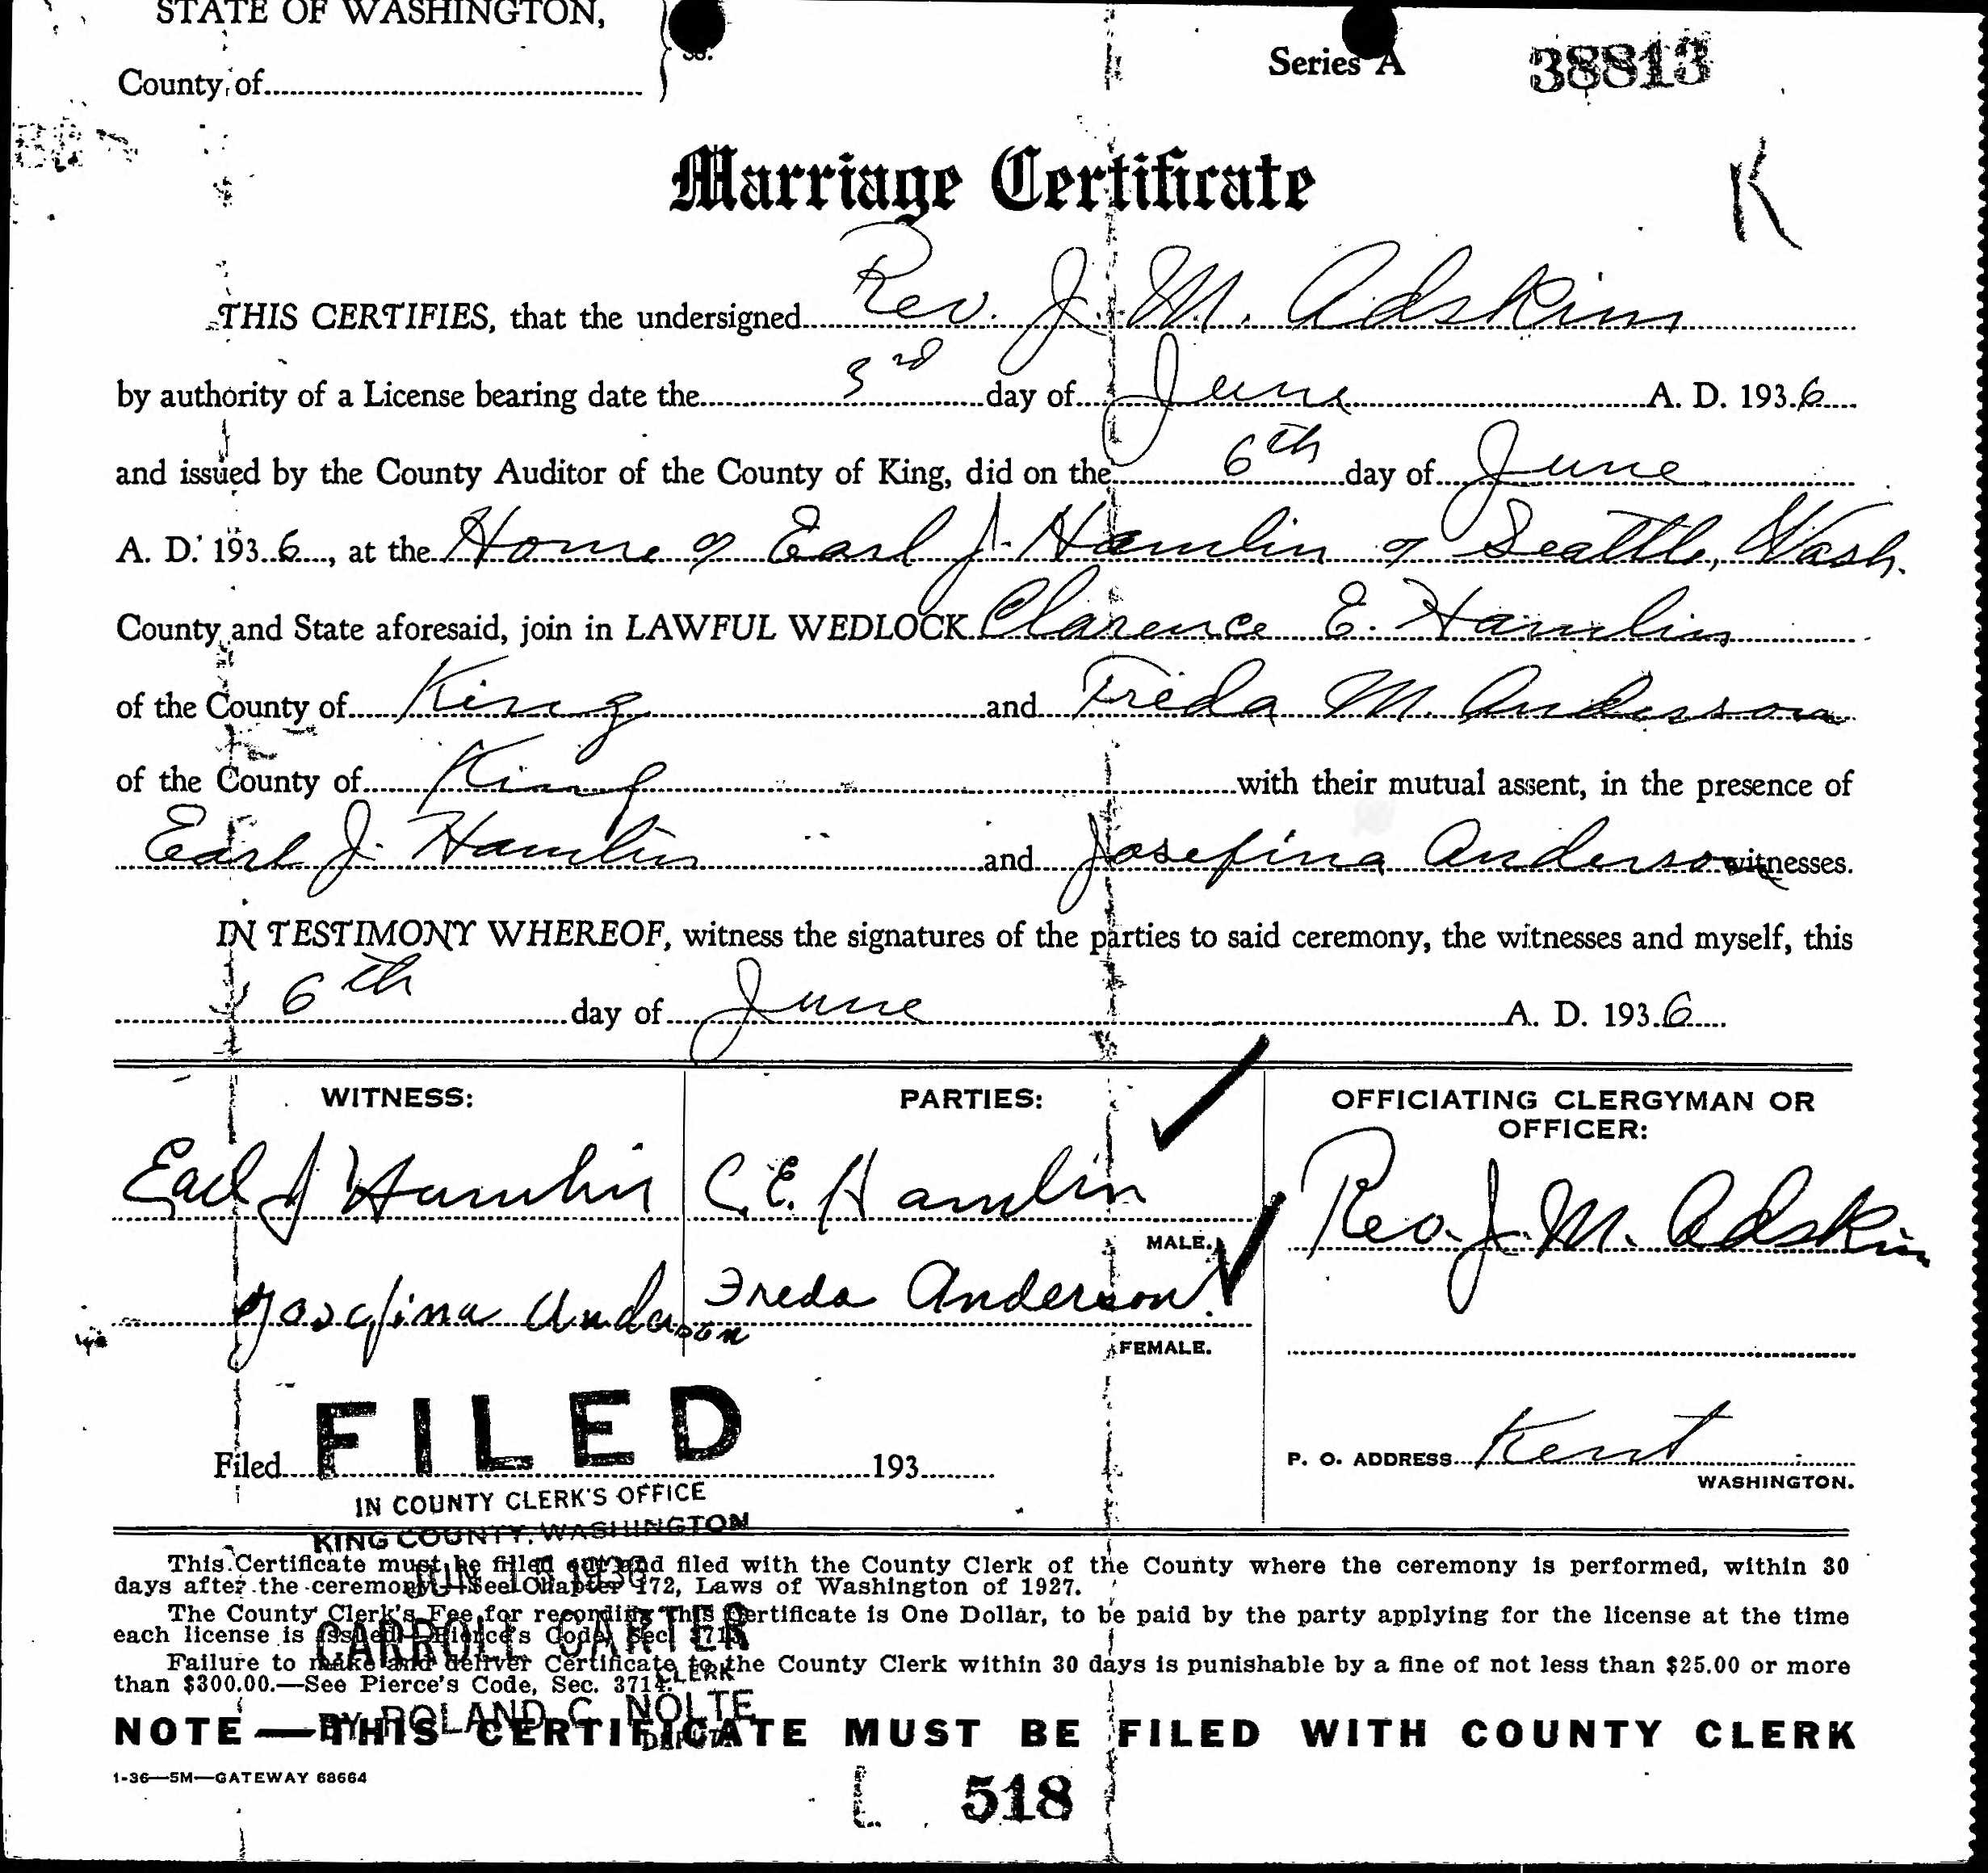 STATE OF WASHINGTON,
ss.
County of
Series A 38813
K
Marriage Certificate
THIS CERTIFIES, that the undersigned Rev. J. M. Adskim
by authority of a License bearing date the 3rd day of June A. D. 1936
and issued by the County Auditor of the County of King, did on the 6th day of June
A. D. 1936, at the Home of Earl J. Hamlin of Seattle, Wash.
County and State aforesaid, join in LAWFUL WEDLOCK Clarence E. Hamlin
of the County of King and Freda M. Anderson
of the County of King with their mutual assent, in the presence of
Earl J. Hamlin and Josefina Anderson witnesses.
IN TESTIMONY WHEREOF, witness the signatures of the parties to said ceremony, the witnesses and myself, this
6th day of June A. D. 1936
WITNESS: PARTIES: OFFICIATING CLERGYMAN OR
OFFICER:
Earl J Hamlin C. E. Hamlin Rev. J. M. Adskim
MALE.
Josefina Anderson Freda Anderson
FEMALE.
FILED
Filed 193
P. O. ADDRESS Kent
WASHINGTON.
IN COUNTY CLERK'S OFFICE
KING COUNTY, WASHINGTON
This Certificate must be filled out and filed with the County Clerk of the County where the ceremony is performed, within 30
days after the ceremony.—See Chapter 172, Laws of Washington of 1927.
JUN 1936
The County Clerk's Fee for recording this Certificate is One Dollar, to be paid by the party applying for the license at the time
each license is issued.—Pierce's Code, Sec.
CARROLL CARTER
CLERK
Failure to make and deliver Certificate to the County Clerk within 30 days is punishable by a fine of not less than $25.00 or more
than $300.00.—See Pierce's Code, Sec. 3714.
BY ROLAND C. NOLTE
DEPUTY
NOTE—THIS CERTIFICATE MUST BE FILED WITH COUNTY CLERK
1-36—5M—GATEWAY 68664
518